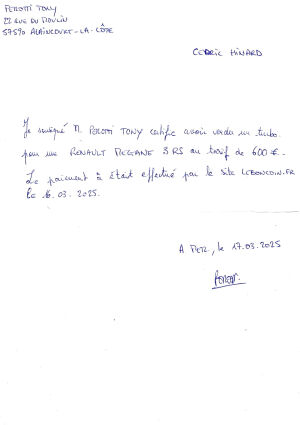 PEROTTI TONY
22 RUE DU MOULIN
57590 ALAINCOURT-LA-CÔTE
CEDRIC MINARD
Je soussigné M. PEROTTI TONY certifie avoir vendu un turbo
pour une RENAULT MEGANE 3 RS au tarif de 600 €.
Le paiement à était effectué par le site LEBONCOIN.FR
le 16.03.2025.
A METZ, le 17.03.2025